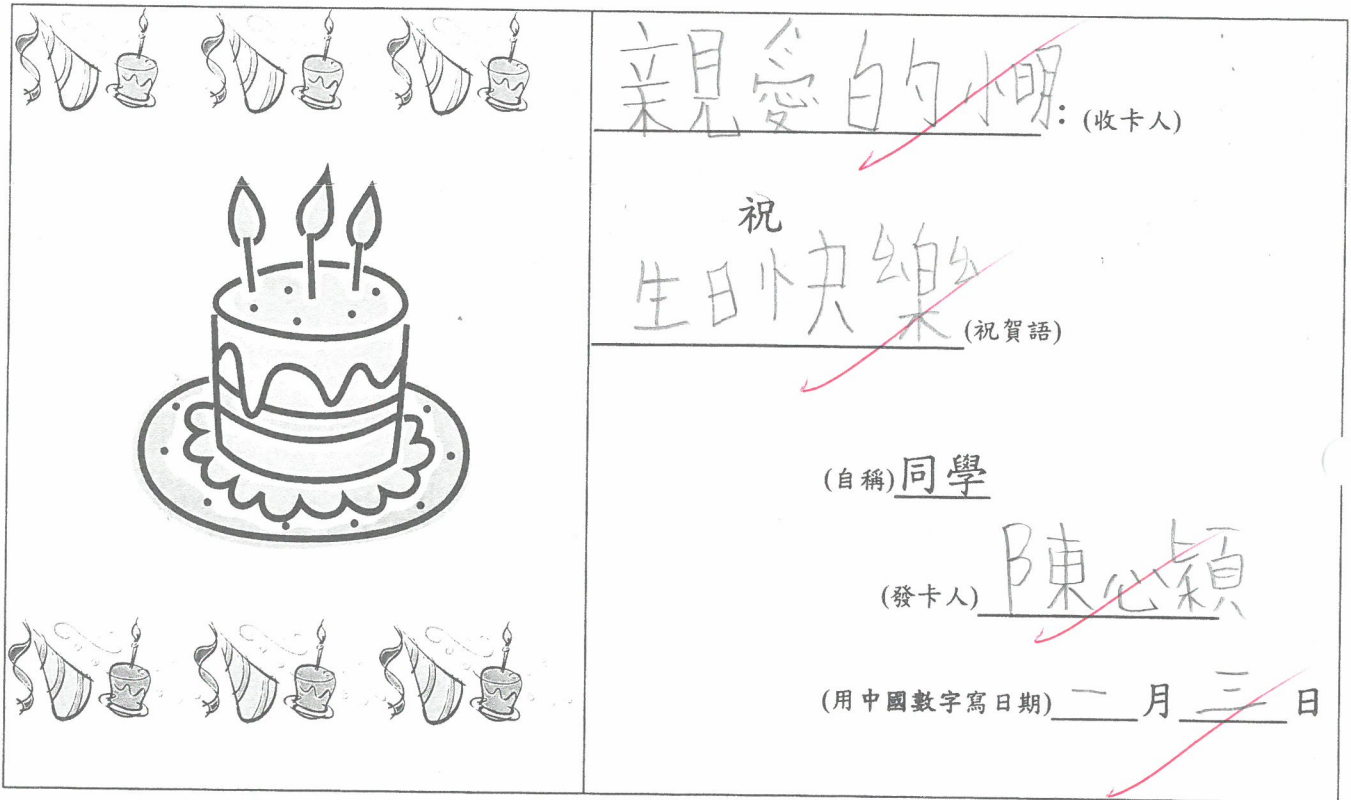 親愛的小明：(收卡人)
祝
生日快樂(祝賀語)
(自稱)同學
(發卡人)陳心穎
(用中國數字寫日期)一月三日